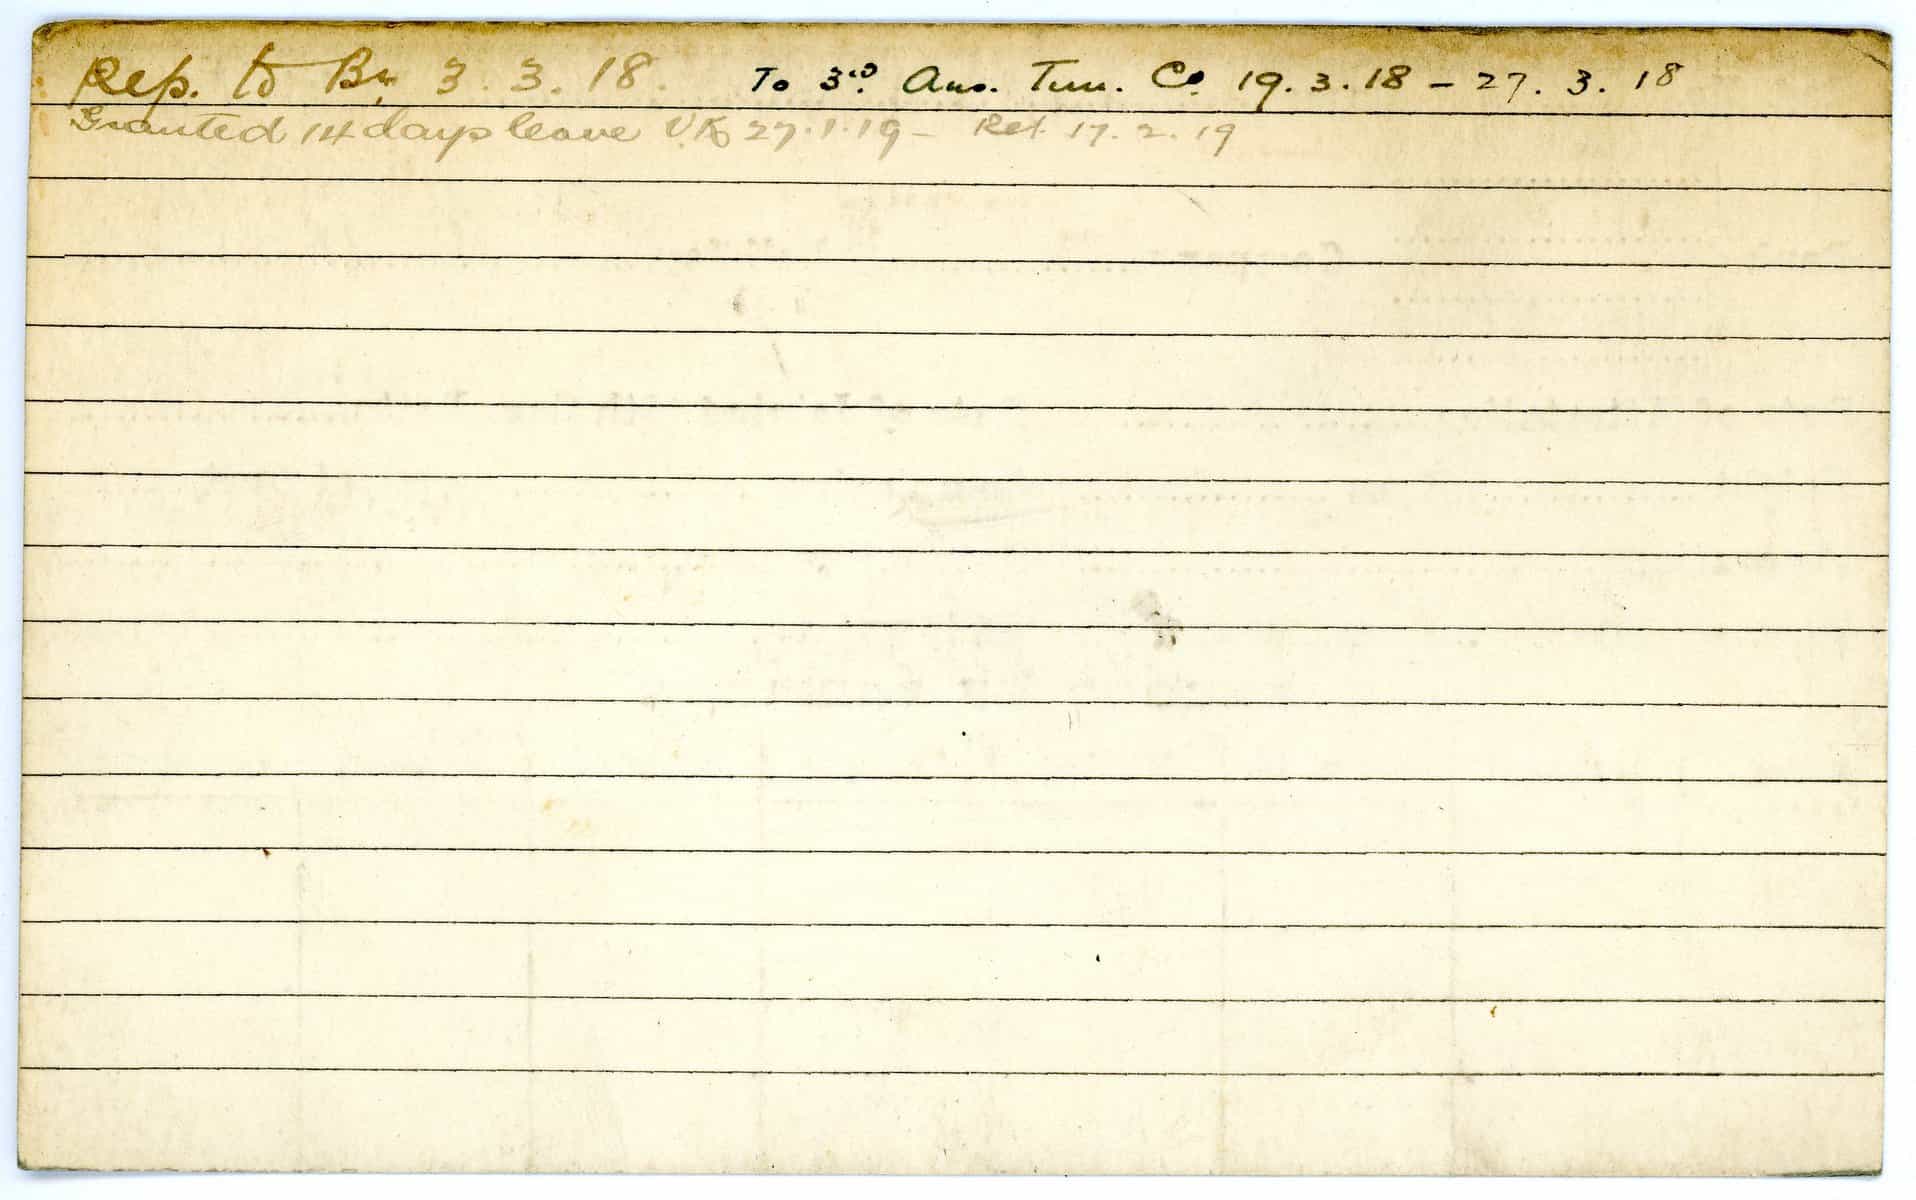 Rep. to Bn 3. 3. 18. To 3rd Aus. Tun. Co. 19. 3. 18 – 27. 3. 18
Granted 14 days leave UK 27.1.19 – Ret 17. 2. 19